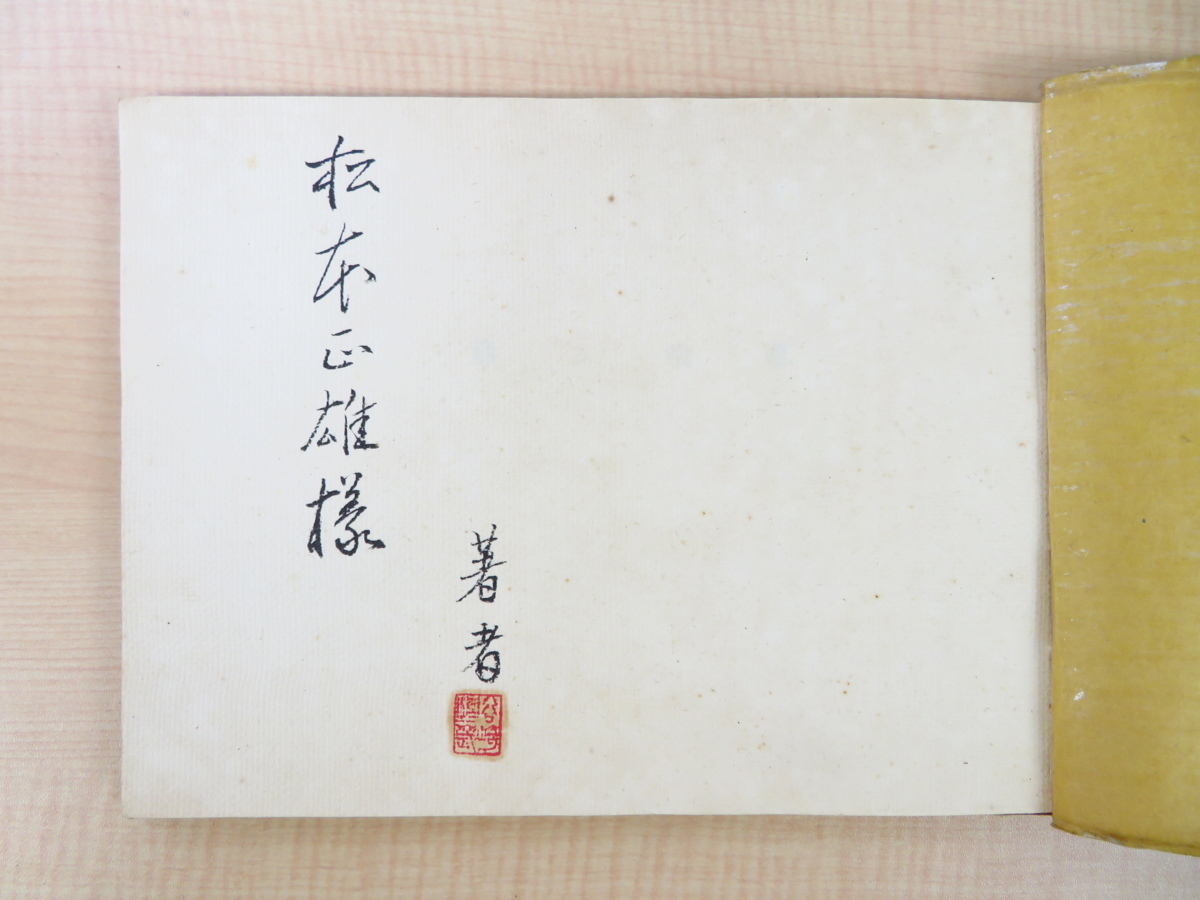 松本正雄様
著者